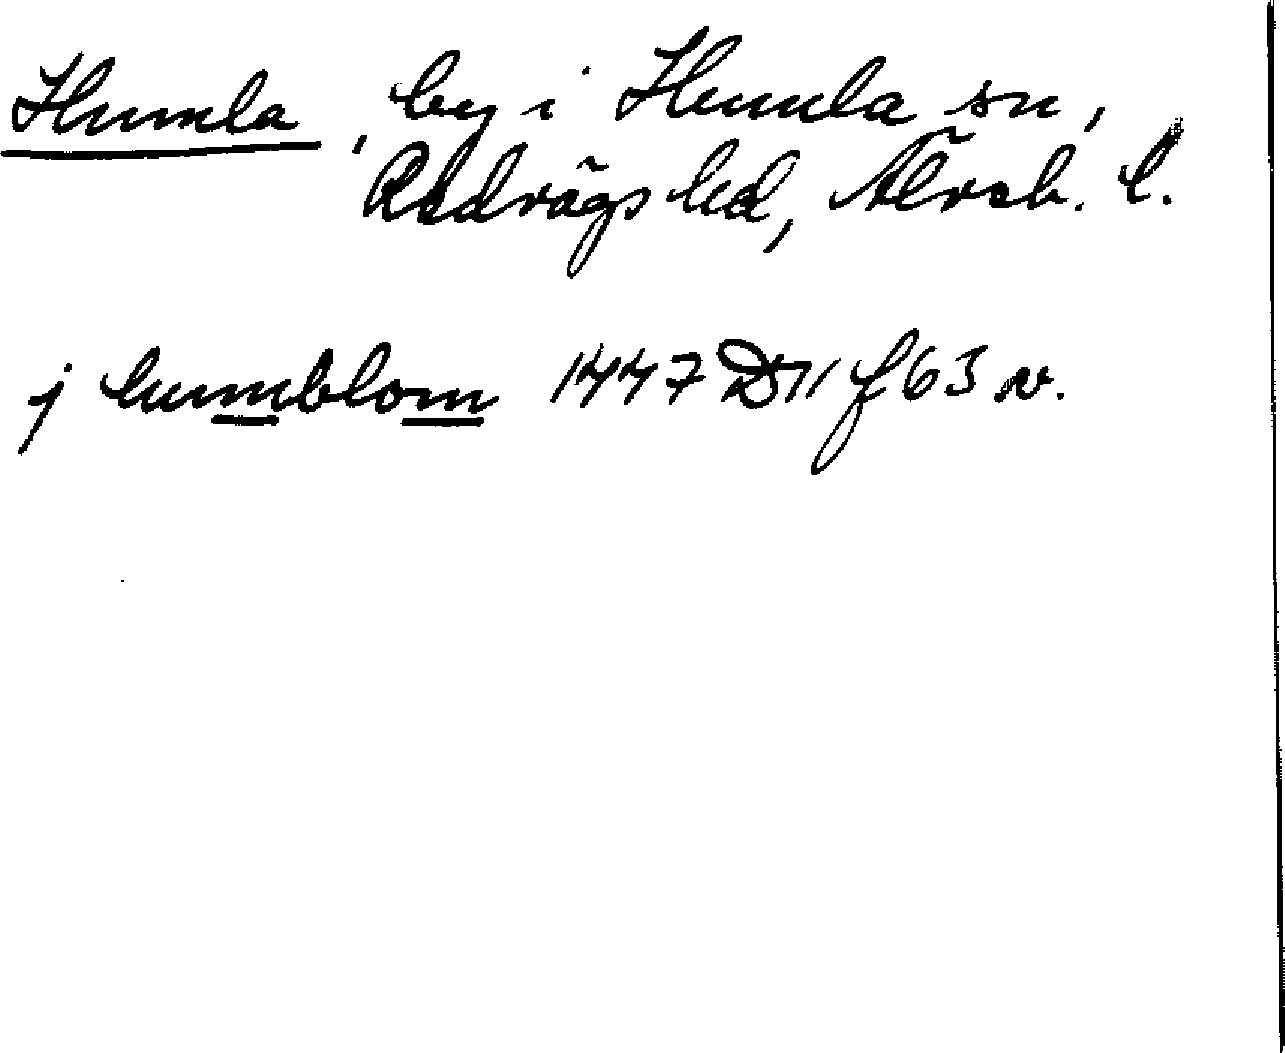 Humla, by i Humla sn,
Redvägs hd, Älvsb. l.
j humblom 1447 D 11 f 63 v.